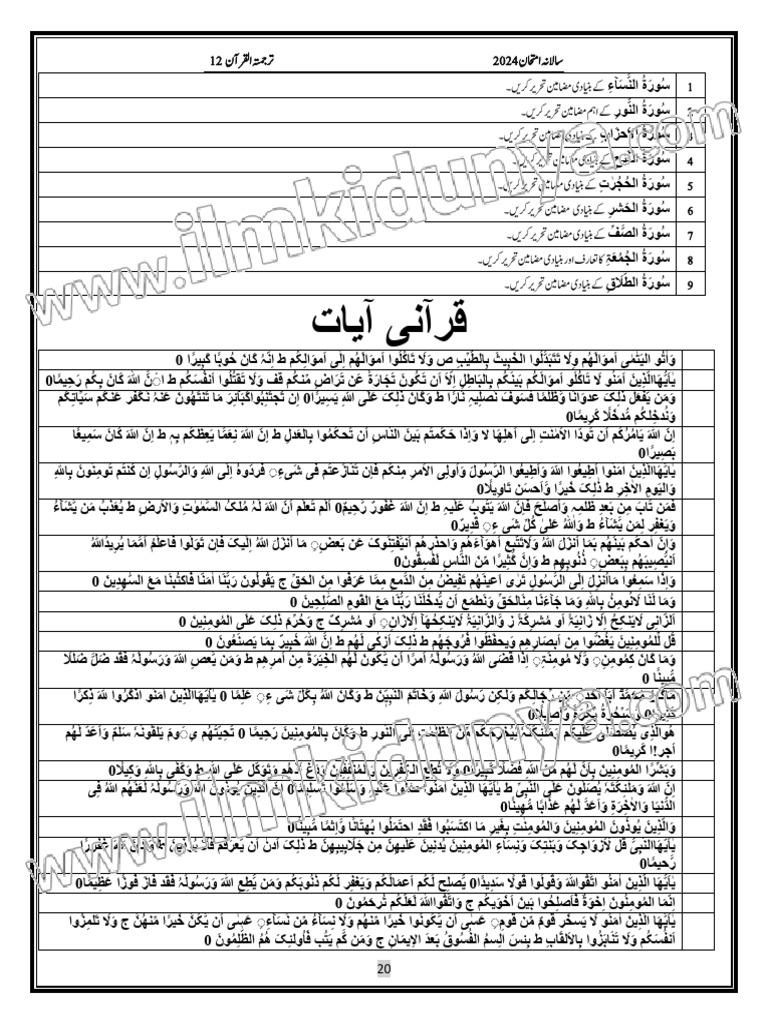 سالانہ امتحان 2024 ترجمۃ القرآن 12
1 سُورَۃُ النِّسَآءِ کے بنیادی مضامین تحریر کریں۔
2 سُورَۃُ النُّورِ کے اہم مضامین تحریر کریں۔
3 سُورَۃُ الأحزَابِ کے بنیادی مضامین تحریر کریں۔
4 سُورَۃُ کے بنیادی مضامین تحریر کریں۔
5 سُورَۃُ الحُجُرٰتِ کے بنیادی مضامین تحریر کریں۔
6 سُورَۃُ الحَشرِ کے بنیادی مضامین تحریر کریں۔
7 سُورَۃُ الصَّفِّ کے بنیادی مضامین تحریر کریں۔
8 سُورَۃُ الجُمُعَۃِ کا تعارف اور بنیادی مضامین تحریر کریں۔
9 سُورَۃُ الطَّلَاقِ کے بنیادی مضامین تحریر کریں۔
قرآنی آیات
وَاٰتُو الیَتٰمٰی اَموَالَھُم وَلَا تَتَبَدَّلُوا الخَبِیثَ بِالطَّیِّبِ ص وَلَا تَاکُلُوا اَموَالَھُم اِلٰی اَموَالِکُم ط اِنَّہُ کَانَ حُوبًا کَبِیرًا 0
یٰاَیُّھَاالَّذِینَ اٰمَنُو لَا تَاکُلُو اَموَالَکُم بَینَکُم بِالبَاطِلِ اِلَّا اَن تَکُونَ تِجَارَۃً عَن تَرَاضٍ مِّنکُم قف وَلَا تَقتُلُوا اَنفُسَکُم ط اِنَّ اللہَ کَانَ بِکُم رَحِیمًا0
وَمَن یَفعَل ذٰلِکَ عدوَانًا وَّظُلمًا فَسَوفَ نُصلِیہِ نَارًا ط وَکَانَ ذٰلِکَ عَلَی اللہِ یَسِیرًا0 اِن تَجتَنِبُوا کَبَآئِرَ مَا تُنھَونَ عَنہُ نُکَفِّر عَنکُم سَیِّاٰتِکُم
وَنُدخِلکُم مُّدخَلًا کَرِیمًا0
اِنَّ اللہَ یَامُرُکُم اَن تُوَدُّا الاَمٰنٰتِ اِلٰی اَھلِھَا لا وَاِذَا حَکَمتُم بَینَ النَّاسِ اَن تَحکُمُوا بِالعَدلِ ط اِنَّ اللہَ نِعِمَّا یَعِظُکُم بِہٖ ط اِنَّ اللہَ کَانَ سَمِیعًا
بَصِیرًا0
یٰاَیُّھَاالَّذِینَ اٰمَنُوا اَطِیعُوا اللہَ وَاَطِیعُوا الرَّسُولَ وَاُولِی الاَمرِ مِنکُم فَاِن تَنَازَعتُم فِی شَیءٍ فَرُدُّوہُ اِلَی اللہِ وَالرَّسُولِ اِن کُنتُم تُومِنُونَ بِاللہِ
وَالیَومِ الاٰخِرِ ط ذٰلِکَ خَیرٌ وَّاَحسَنُ تَاوِیلًا0
فَمَن تَابَ مِن بَعدِ ظُلمِہٖ وَاَصلَحَ فَاِنَّ اللہَ یَتُوبُ عَلَیہِ ط اِنَّ اللہَ غَفُورٌ رَحِیمٌ0 اَلَم تَعلَم اَنَّ اللہَ لَہٗ مُلکُ السَّمٰوٰتِ وَالاَرضِ ط یُعَذِّبُ مَن یَّشَآءُ
وَیَغفِرُ لِمَن یَّشَآءُ ط وَاللہُ عَلٰی کُلِّ شَیءٍ قَدِیرٌ0
وَاَنِ احکُم بَینَھُم بِمَا اَنزَلَ اللہُ وَلَاتَتَّبِع اَھوَآءَھُم وَاحذَرھُم اَن یَّفتِنُوکَ عَن بَعضِ مَا اَنزَلَ اللہُ اِلَیکَ فَاِن تَوَلَّوا فَاعلَم اَنَّمَا یُرِیدُاللہُ
اَن یُّصِیبَھُم بِبَعضِ ذُنُوبِھِم ط وَاِنَّ کَثِیرًا مِّنَ النَّاسِ لَفٰسِقُونَ0
وَاِذَا سَمِعُوا مَااُنزِلَ اِلَی الرَّسُولِ تَرٰی اَعیُنَھُم تَفِیضُ مِنَ الدَّمعِ مِمَّا عَرَفُوا مِنَ الحَقِّ ج یَقُولُونَ رَبَّنَا اٰمَنَّا فَاکتُبنَا مَعَ الشّٰھِدِینَ 0
وَمَا لَنَا لَانُومِنُ بِاللہِ وَمَا جَآءَنَا مِنَ الحَقِّ وَنَطمَعُ اَن یُّدخِلَنَا رَبُّنَا مَعَ القَومِ الصّٰلِحِینَ 0
اَلزَّانِی لَایَنکِحُ اِلَّا زَانِیَۃً اَو مُشرِکَۃً ز وَّالزَّانِیَۃُ لَایَنکِحُھَا اِلَّازَانٍ اَو مُشرِکٌ ج وَحُرِّمَ ذٰلِکَ عَلَی المُومِنِینَ 0
قُل لِّلمُومِنِینَ یَغُضُّوا مِن اَبصَارِھِم وَیَحفَظُوا فُرُوجَھُم ط ذٰلِکَ اَزکٰی لَھُم ط اِنَّ اللہَ خَبِیرٌ بِمَا یَصنَعُونَ 0
وَمَا کَانَ لِمُومِنٍ وَّلَا مُومِنَۃٍ اِذَا قَضَی اللہُ وَرَسُولُہٗ اَمرًا اَن یَّکُونَ لَھُمُ الخِیَرَۃُ مِن اَمرِھِم ط وَمَن یَّعصِ اللہَ وَرَسُولَہٗ فَقَد ضَلَّ ضَلٰلًا
مُّبِینًا 0
مَاکَانَ مُحَمَّدٌ اَبَا اَحَدٍ مِّن رِّجَالِکُم وَلٰکِن رَّسُولَ اللہِ وَخَاتَمَ النَّبِیّٖنَ ط وَکَانَ اللہُ بِکُلِّ شَیءٍ عَلِیمًا 0 یٰاَیُّھَاالَّذِینَ اٰمَنُو اذکُرُوا اللہَ ذِکرًا
کَثِیرًا0 وَّسَبِّحُوہُ بُکرَۃً وَّاَصِیلًا0
ھُوَالَّذِی یُصَلِّی عَلَیکُم وَمَلٰئِکَتُہٗ لِیُخرِجَکُم مِّنَ الظُّلُمٰتِ اِلَی النُّورِ ط وَکَانَ بِالمُومِنِینَ رَحِیمًا 0 تَحِیَّتُھُم یَومَ یَلقَونَہٗ سَلٰمٌ وَّاَعَدَّ لَھُم
اَجرًا کَرِیمًا0
وَبَشِّرِ المُومِنِینَ بِاَنَّ لَھُم مِّنَ اللہِ فَضلًا کَبِیرًا0 وَلَا تُطِعِ الکٰفِرِینَ وَالمُنٰفِقِینَ وَدَع اَذٰھُم وَتَوَکَّل عَلَی اللہِ ط وَکَفٰی بِاللہِ وَکِیلًا0
اِنَّ اللہَ وَمَلٰئِکَتَہٗ یُصَلُّونَ عَلَی النَّبِیِّ ط یٰاَیُّھَا الَّذِینَ اٰمَنُوا صَلُّوا عَلَیہِ وَسَلِّمُوا تَسلِیمًا0 اِنَّ الَّذِینَ یُوذُونَ اللہَ وَرَسُولَہٗ لَعَنَھُمُ اللہُ فِی
الدُّنیَا وَالاٰخِرَۃِ وَاَعَدَّ لَھُم عَذَابًا مُّھِینًا0
وَالَّذِینَ یُوذُونَ المُومِنِینَ وَالمُومِنٰتِ بِغَیرِ مَا اکتَسَبُوا فَقَدِ احتَمَلُوا بُھتَانًا وَّاِثمًا مُّبِینًا0
یٰاَیُّھَاالنَّبِیُّ قُل لِّاَزوَاجِکَ وَبَنٰتِکَ وَنِسَآءِ المُومِنِینَ یُدنِینَ عَلَیھِنَّ مِن جَلَابِیبِھِنَّ ط ذٰلِکَ اَدنٰی اَن یُّعرَفنَ فَلَا یُوذَینَ ط وَکَانَ اللہُ غَفُورًا
رَّحِیمًا0
یٰاَیُّھَا الَّذِینَ اٰمَنُوا اتَّقُواللہَ وَقُولُوا قَولًا سَدِیدًا0 یُّصلِح لَکُم اَعمَالَکُم وَیَغفِر لَکُم ذُنُوبَکُم وَمَن یُّطِعِ اللہَ وَرَسُولَہٗ فَقَد فَازَ فَوزًا عَظِیمًا0
اِنَّمَا المُومِنُونَ اِخوَۃٌ فَاَصلِحُوا بَینَ اَخَوَیکُم ج وَاتَّقُواللہَ لَعَلَّکُم تُرحَمُونَ 0
یٰاَیُّھَا الَّذِینَ اٰمَنُو لَا یَسخَر قَومٌ مِّن قَومٍ عَسٰی اَن یَّکُونُوا خَیرًا مِّنھُم وَلَا نِسَآءٌ مِّن نِّسَآءٍ عَسٰی اَن یَّکُنَّ خَیرًا مِّنھُنَّ ج وَلَا تَلمِزُوا
اَنفُسَکُم وَلَا تَنَابَزُوا بِالاَلقَابِ ط بِئسَ الِاسمُ الفُسُوقُ بَعدَ الاِیمَانِ ج وَمَن لَّم یَتُب فَاُولٰئِکَ ھُمُ الظّٰلِمُونَ 0
20
www.ilmkidunya.com
www.ilmkidunya.com